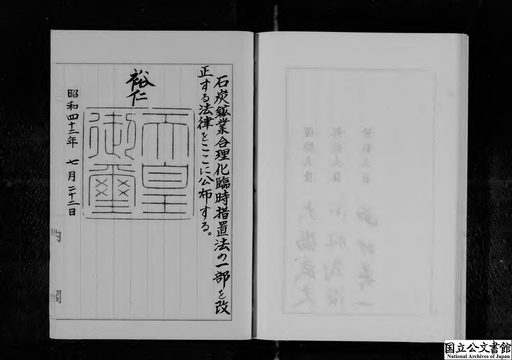 石炭鉱業合理化臨時措置法の一部を改
正する法律をここに公布する。
裕仁
天皇
御璽
昭和四十二年七月二十二日
国立公文書館
National Archives of Japan